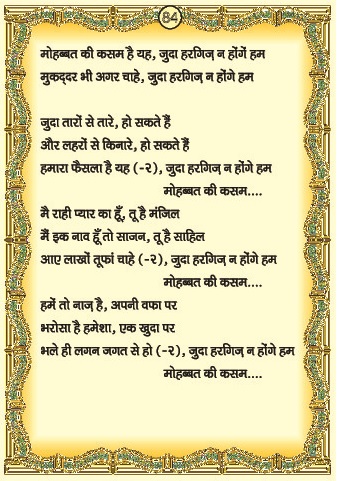 84
मोहब्बत की कसम है यह, जुदा हरगिज़ न होंगें हम
मुकद्दर भी अगर चाहे, जुदा हरगिज़ न होंगे हम
जुदा तारों से तारे, हो सकते हैं
और लहरों से किनारे, हो सकते हैं
हमारा फैसला है यह (-२), जुदा हरगिज़ न होंगे हम
मोहब्बत की कसम....
मै राही प्यार का हूँ, तू है मंजिल
मैं इक नाव हूँ तो साजन, तू है साहिल
आए लाखों तूफां चाहे (-२), जुदा हरगिज़ न होंगे हम
मोहब्बत की कसम....
हमें तो नाज़ है, अपनी वफा पर
भरोसा है हमेशा, एक खुदा पर
भले ही लगन जगत से हो (-२), जुदा हरगिज़ न होंगे हम
मोहब्बत की कसम....